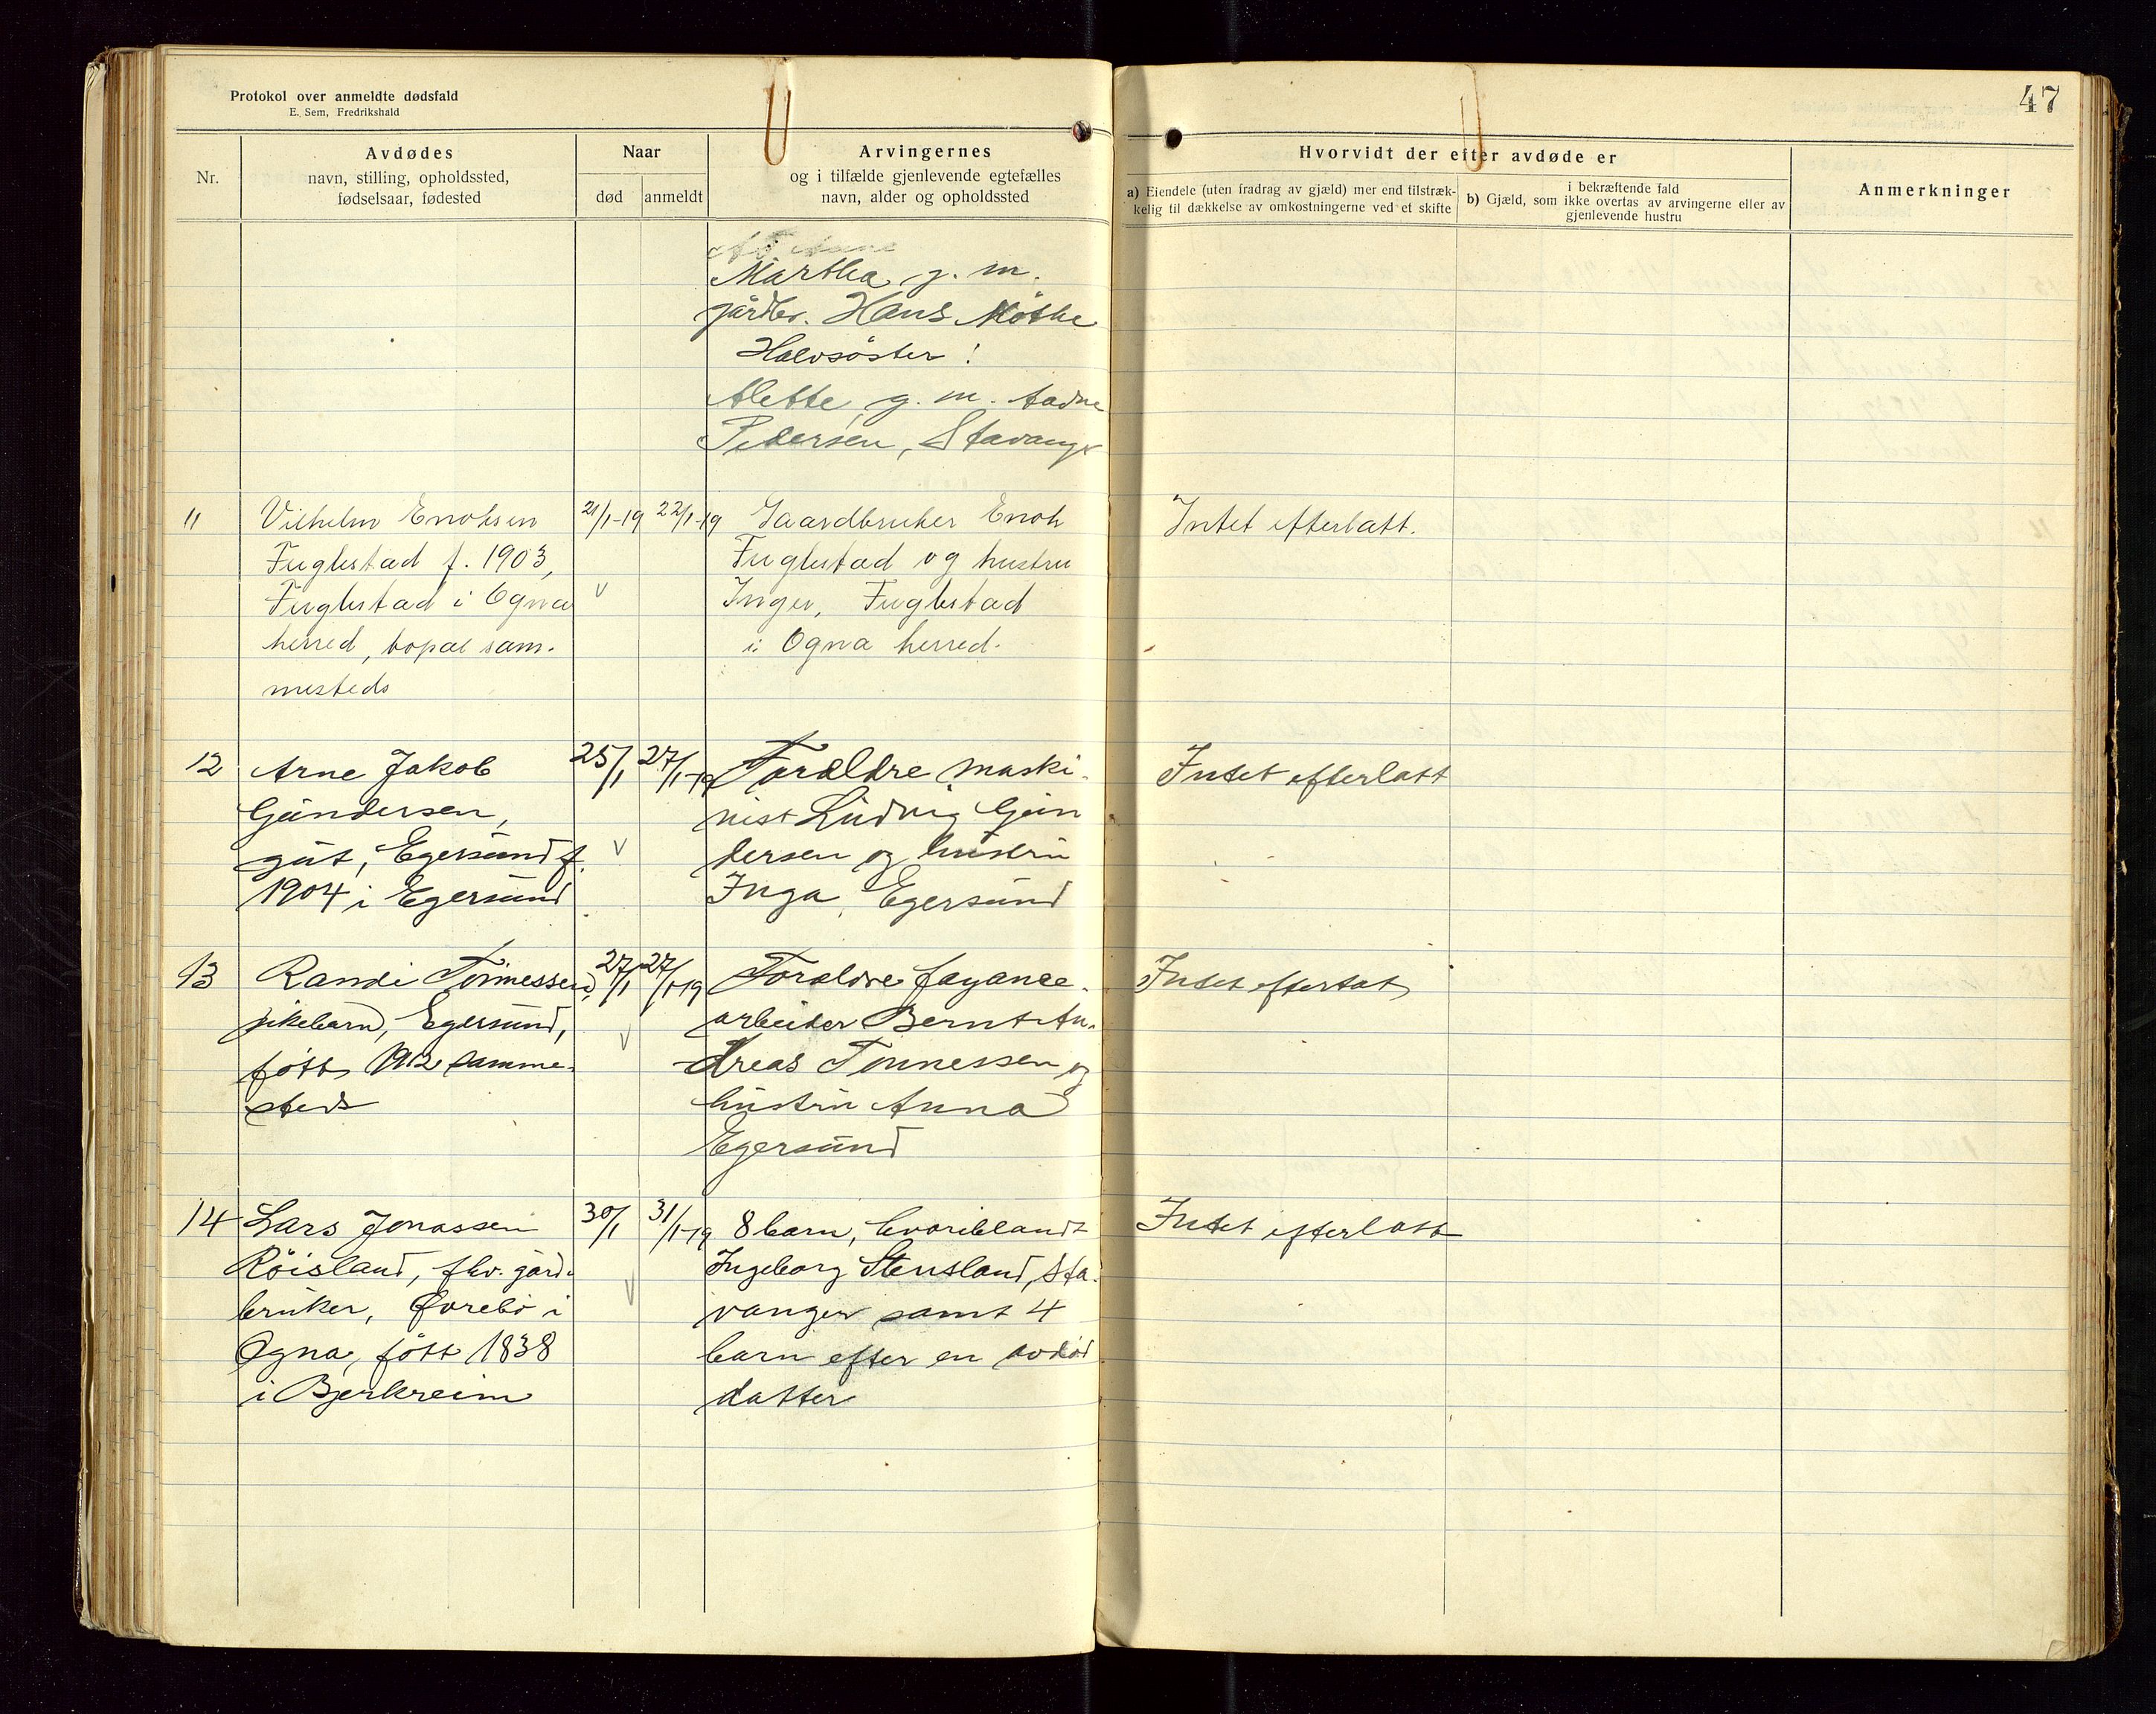 Protokol over anmeldte dødsfald
E. Sem, Fredrikshald
47
Nr.
Avdødes
navn, stilling, opholdssted,
fødselsaar, fødested
Naar
død
anmeldt
Arvingernes
og i tilfælde gjenlevende egtefælles
navn, alder og opholdssted
Hvorvidt der efter avdøde er
a) Eiendele (uten fradrag av gjæld) mer end tilstræk-
kelig til dækkelse av omkostningerne ved et skifte
i bekræftende fald
b) Gjæld, som ikke overtas av arvingerne eller av
gjenlevende hustru
Anmerkninger
Martha g. m.
gårdbr. Hans
Halvsöster:
Alette, g. m. Aadne
Pedersen, Stavanger
11
Vilhelm Enoksen
Fuglestad f. 1903,
Fuglestad i Ogna
herred, bopæl sam-
mesteds
21/1-19
22/1-19
Gaardbruker Enok
Fuglestad og hustru
Inger, Fuglestad
i Ogna herred.
Intet efterlatt.
12
Arne Jakob
Gundersen,
gut, Egersund f.
1904 i Egersund
25/1
27/1-19
Forældre maski-
nist Ludvig Gun
dersen og hustru
Inga, Egersund
Intet efterlatt
13
Randi Tönnessen,
pikebarn, Egersund,
fött 1912 samme-
steds
27/1
27/1-19
Forældre fayance-
arbeider Bernt An-
dreas Tönnessen og
hustru Anna
Egersund
Intet efterlatt
14
Lars Jonassen
Röisland, fhv. gård-
bruker, Qvrebö i
Ogna, fött 1838
i Bjerkreim
30/1
31/1-19
8 barn, hvoriblandt
Ingeborg Stensland, Sta-
vanger samt 4
barn efter en avdöd
datter
Intet efterlatt